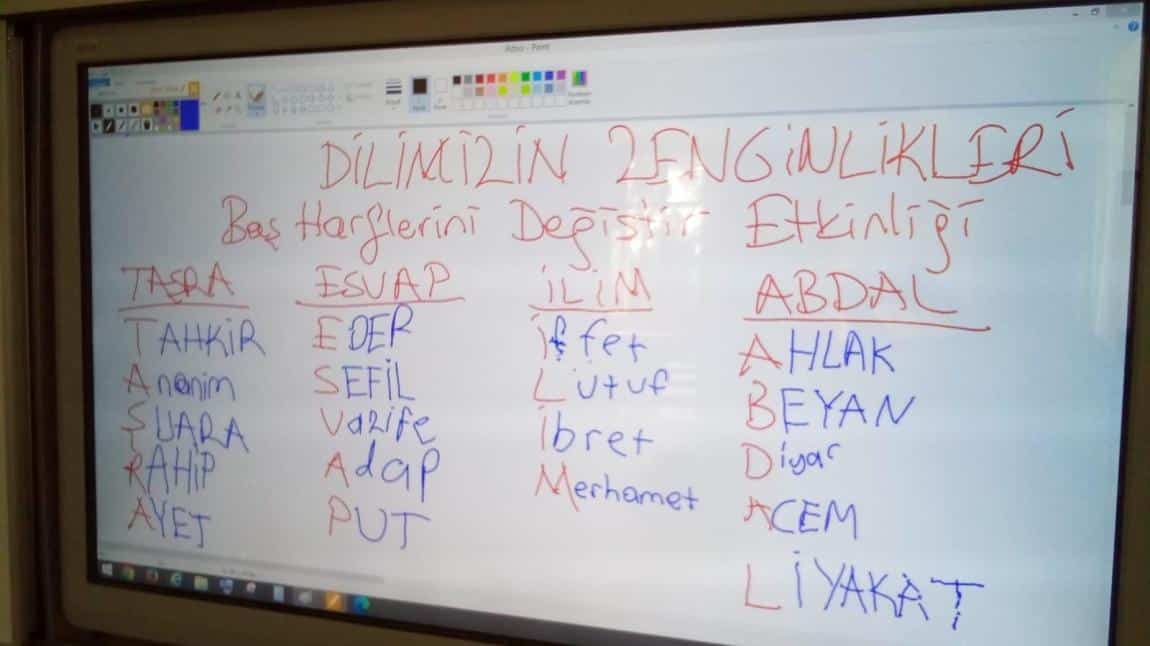 Adsız - Paint
DİLİMİZİN ZENGİNLİKLERİ
Baş Harflerini Değiştir Etkinliği
TAŞRA
TAHKİR
Anonim
ŞUARA
RAHİP
AYET
ESVAP
EDER
SEFİL
Vazife
Adap
PUT
İLİM
İffet
Lütuf
İbret
Merhamet
ABDAL
AHLAK
BEYAN
Diyar
ACEM
LİYAKAT